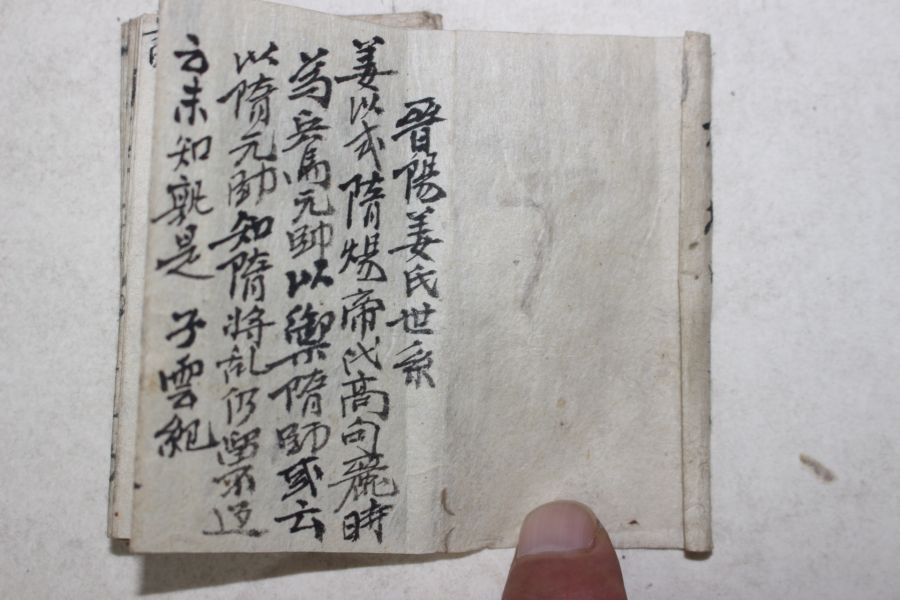 晉陽姜氏世系
姜以式隋煬帝伐高句麗時
為兵馬元帥以禦隋師或云
以隋元帥知隋將乱仍留不還
云未知孰是 子雲紀